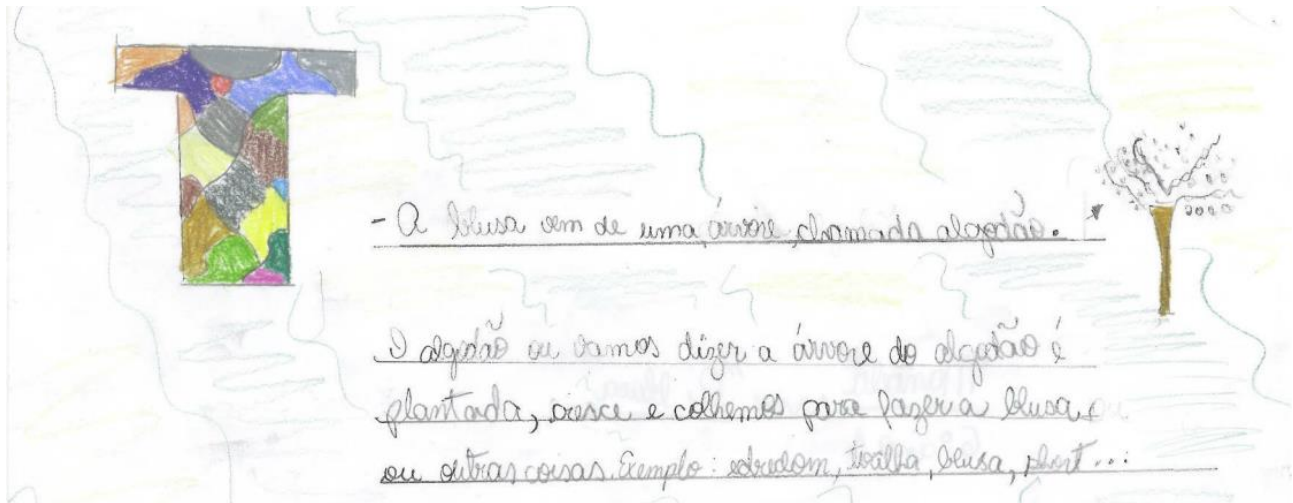 - A blusa vem de uma árvore, chamada algodão.
O algodão ou vamos dizer a árvore do algodão é
plantada, cresce e colhemos para fazer a blusa
ou outras coisas. Exemplo: edredom, toalha, blusa, short...